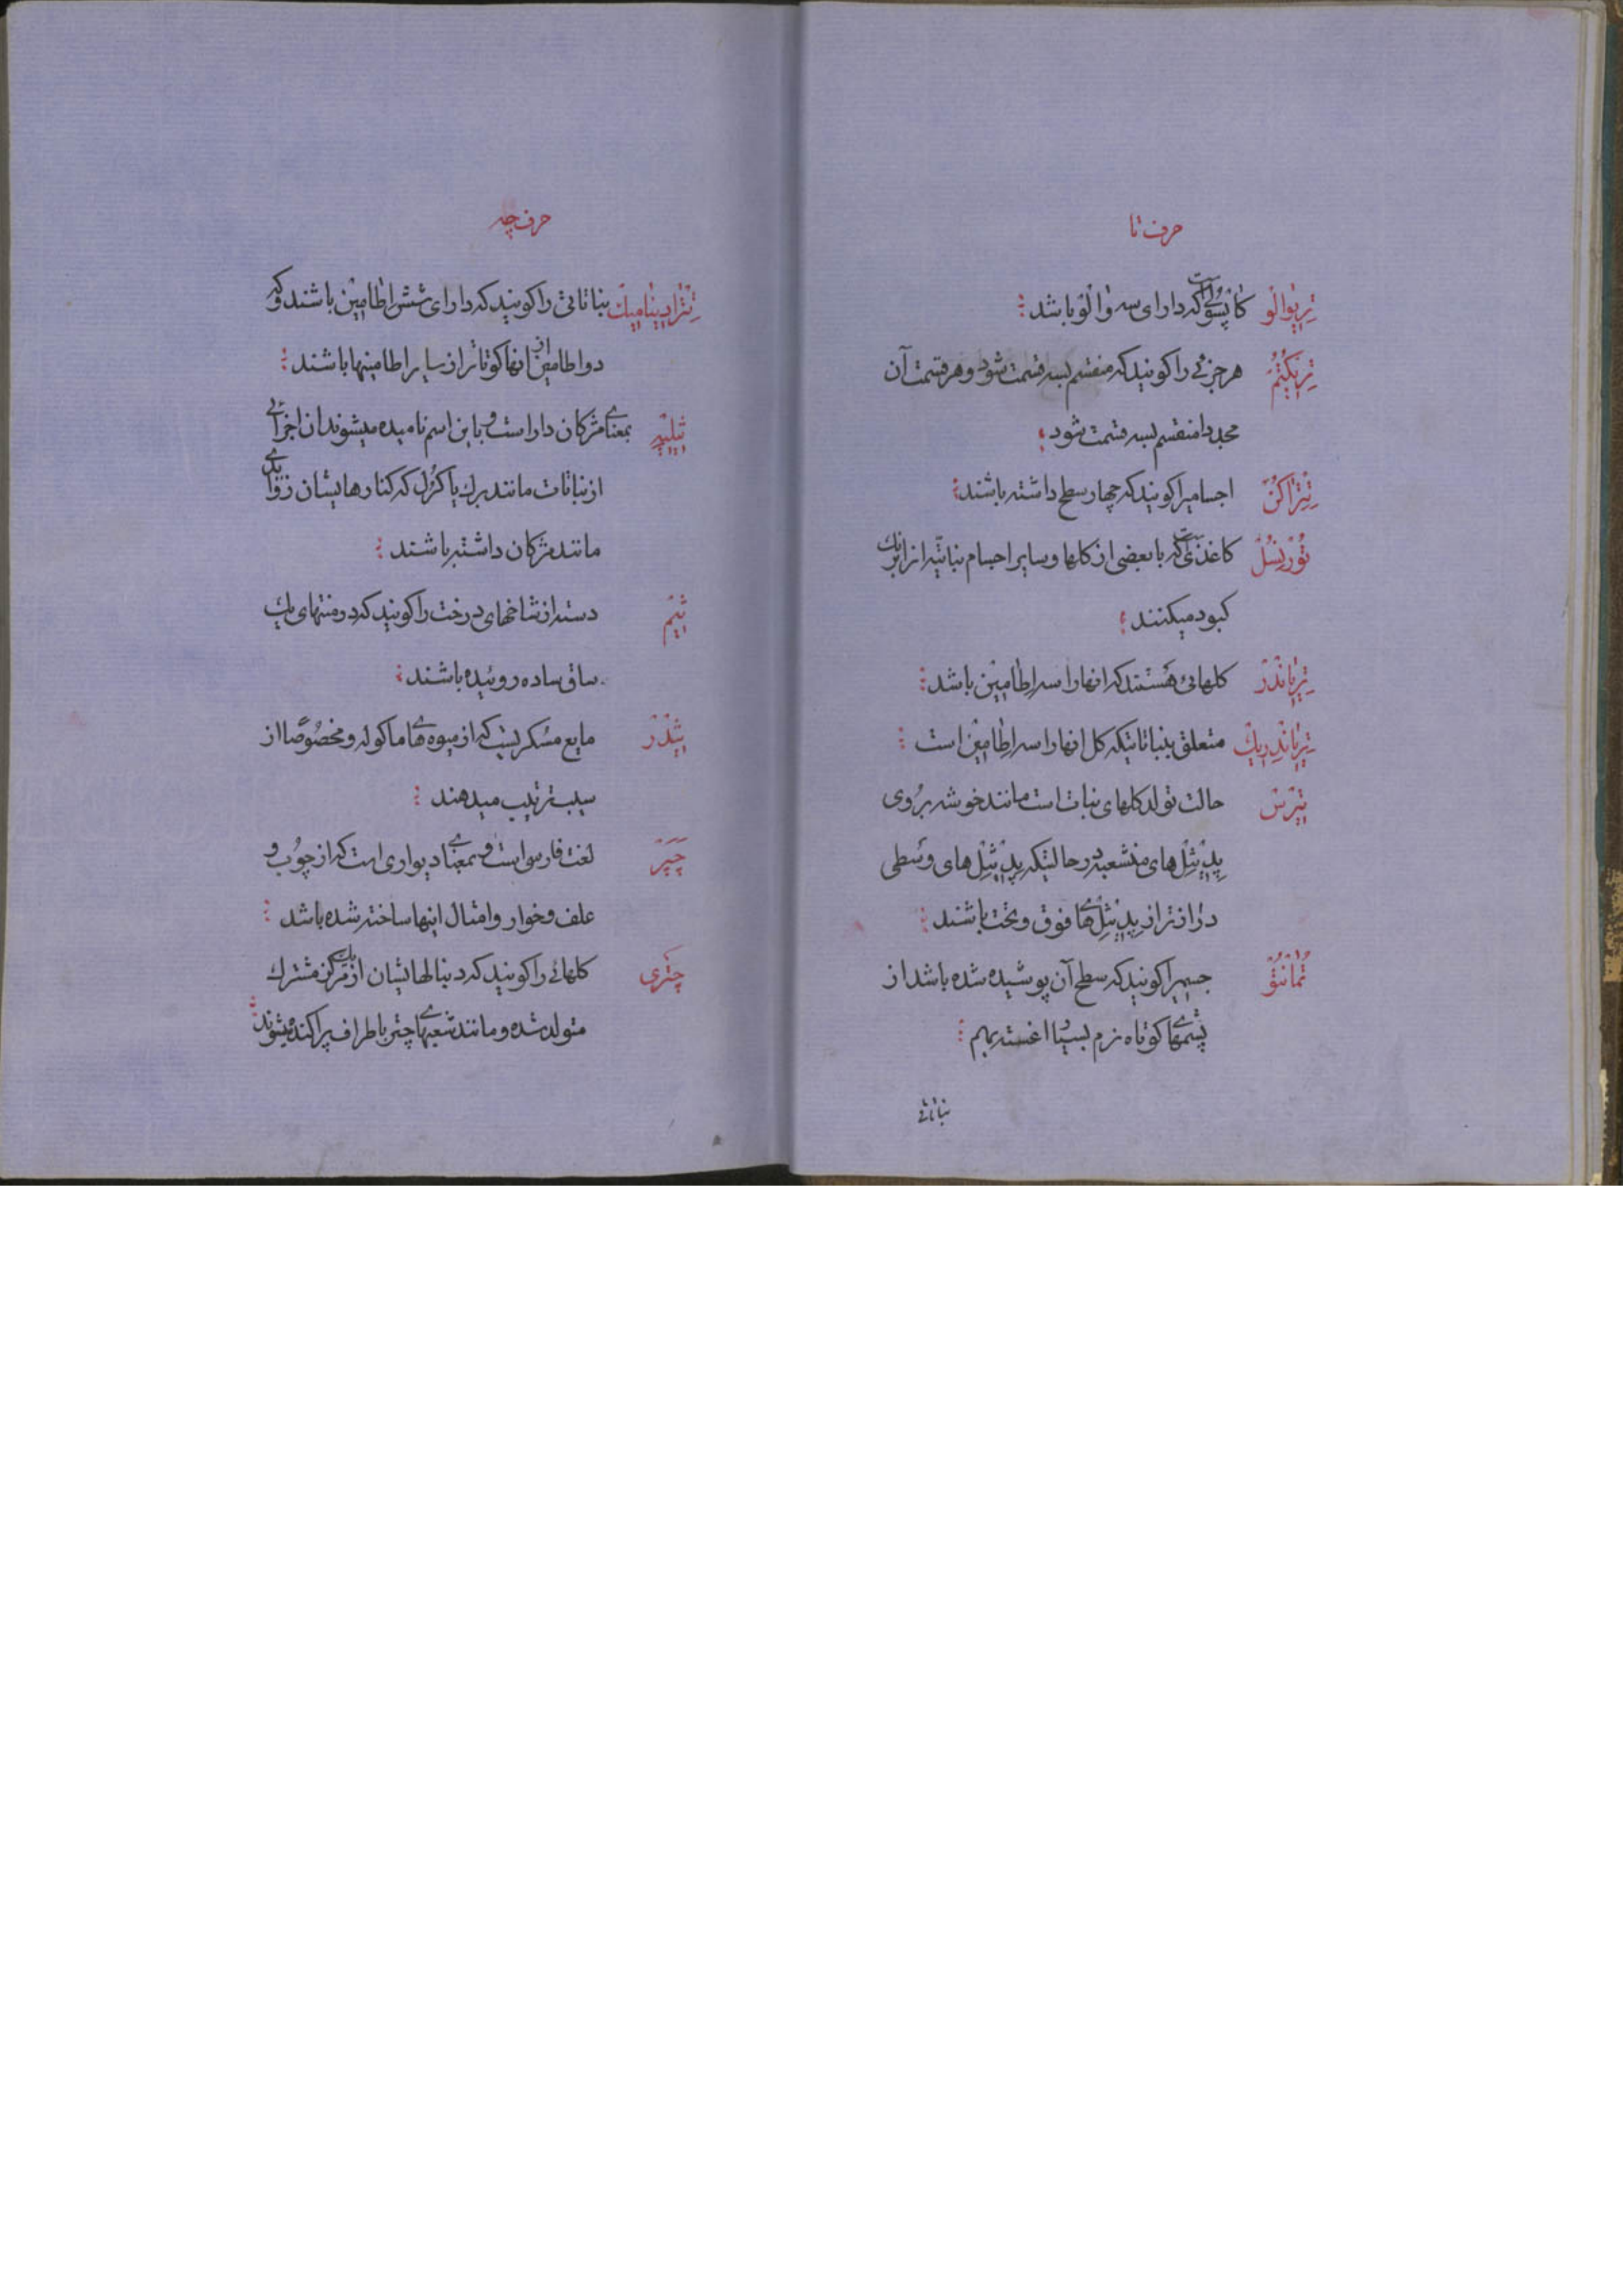 حرف تا
تریوالو کاپسولی است که دارای سه والو باشد
تریکتم هر جزئی را کویند که منقسم بسه قسمت شود و هر قسمت آن
مجددا منقسم بسه قسمت شود
تتراکن اجسامیرا کویند که چهار سطح داشته باشند
تورنسل کاغذی است که با بعضی از کلها و سایر اجسام نباتیه انرا نیک
کبود میکنند
تریاندر کلهائی هستند که انها را سه اطامین باشد
تریاندریک متعلق بنباتاتیکه کل انها را سه اطامین است
تیرس حالت تولد کلهای نبات است مانند خوشه بر روی
پدیثل های منشعبه در حالتیکه پدیثل های وسطی
درازتر از پدیثل های فوق و تحت باشند
تمانتو جسمیرا کویند که سطح آن پوشیده شده باشد از
پشمهای کوتاه نرم بسیار اغشته بهم
نباتاتی
حرف چه
تترادینامیک نباتاتی را کویند که دارای شش اطامین باشند که
دو اطامین از انها کوتاتر از سایر اطامینها باشند
بمعنای مژکان دار است و باین اسم نامیده میشوند ان اجزائی
از نباتات مانند برك یا کرل که کنارهایشان زوایدی
مانند مژکان داشته باشند
دسته از شاخهای درخت را کویند که در منتهای یك
ساق ساده روئیده باشند
مایع مسکریست که از میوه های ماکوله و مخصوصا از
سیب ترتیب میدهند
چپر لغت فارسی است و بمعنای دیواری است که از چوب و
علف و خوار و امثال اینها ساخته شده باشد
چتری کلهائی را کویند که دنبالهایشان از یك مرکز مشترك
متولد شده و مانند شعبهای چتر باطراف پراکنده میشوند